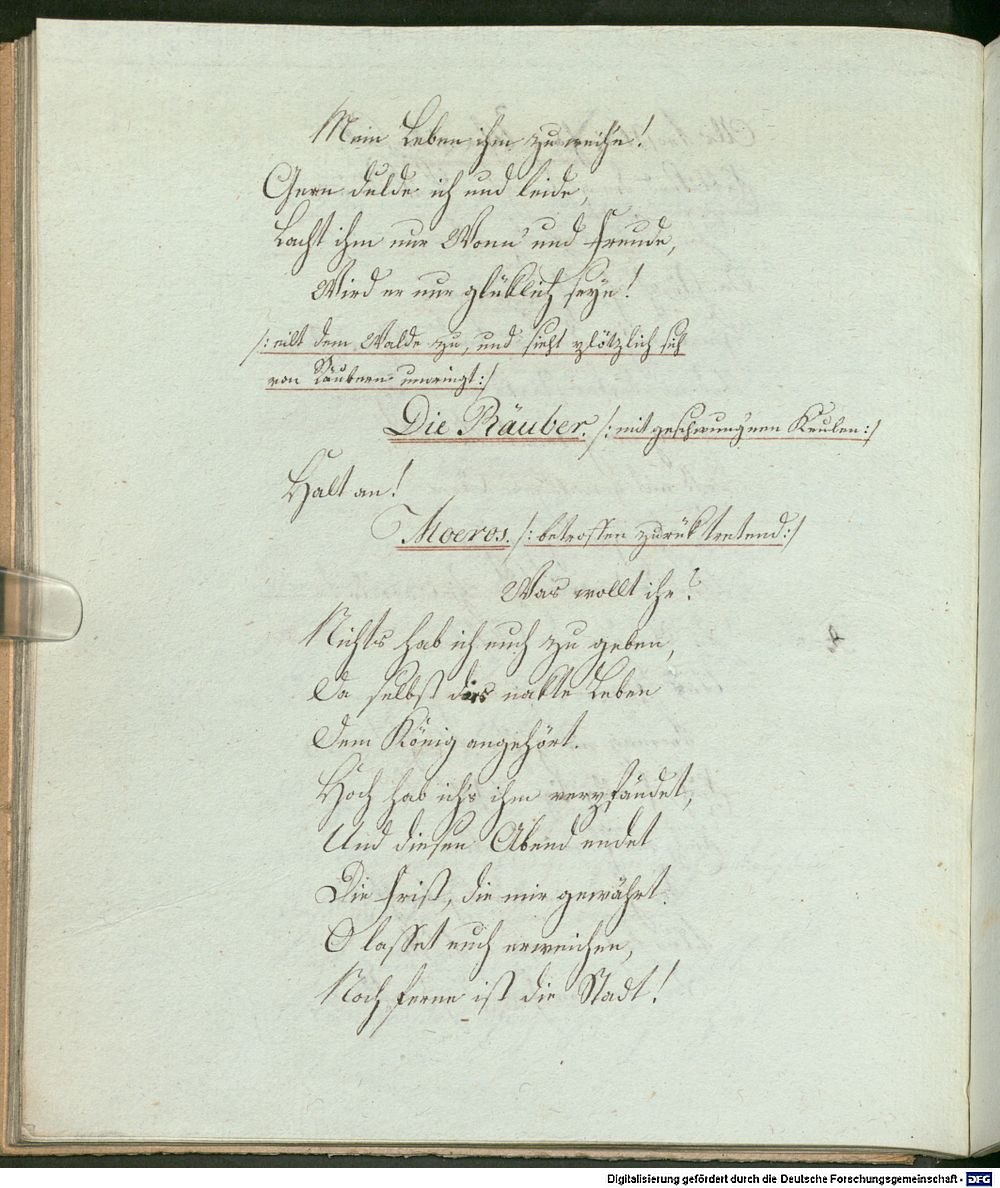 Mein Leben ihm zu weihn!
Gern dulde ich und leide,
Lacht ihm nur Wonn' und Freude,
Wird er nur glüklich seyn!
/: eilt dem Walde zu, und sieht plötzlich sich
von Räubern umringt :/
Die Räuber. /: mit geschwungnen Keulen :/
Halt an!
Moeros. /: betroffen zurük tretend :/
Was wollt ihr?
Nichts hab ich euch zu geben,
Da selbst das nakte Leben
Dem König angehört.
Hoch hab ich's ihm verpfändet,
Und diesen Abend endet
Die Frist, die mir gewährt.
O lasset euch erweichen,
Noch ferne ist die Stadt!
Digitalisierung gefördert durch die Deutsche Forschungsgemeinschaft - DFG